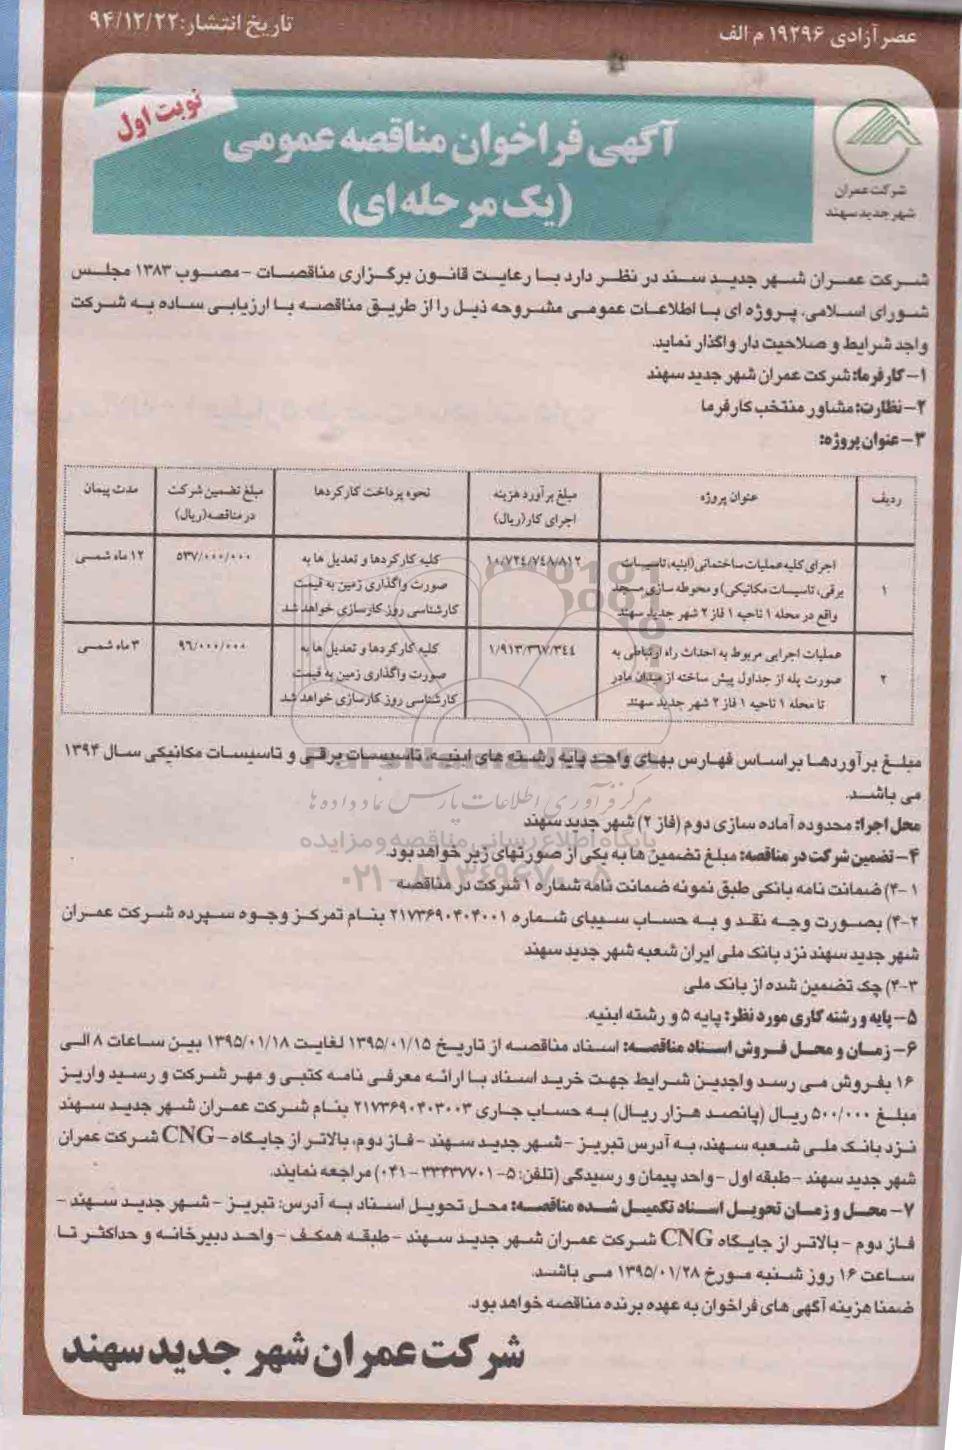 عصر آزادی ۱۹۲۹۶ م الف
تاریخ انتشار: ۹۴/۱۲/۲۲
نوبت اول
آگهی فراخوان مناقصه عمومی
(یک مرحله ای)
شرکت عمران
شهر جدید سهند
شرکت عمران شهر جدید سند در نظر دارد با رعایت قانون برگزاری مناقصات - مصوب ۱۳۸۳ مجلس
شورای اسلامی، پروژه ای با اطلاعات عمومی مشروحه ذیل را از طریق مناقصه با ارزیابی ساده به شرکت
واجد شرایط و صلاحیت دار واگذار نماید.
۱- کارفرما: شرکت عمران شهر جدید سهند
۲- نظارت: مشاور منتخب کارفرما
۳- عنوان پروژه:
ردیف
عنوان پروژه
مبلغ برآورد هزینه
اجرای کار (ریال)
نحوه پرداخت کارکردها
مبلغ تضمین شرکت
در مناقصه (ریال)
مدت پیمان
۱
اجرای کلیه عملیات ساختمانی (ابنیه، تاسیسات
برقی، تاسیسات مکانیکی) و محوطه سازی مسجد
واقع در محله ۱ ناحیه ۱ فاز ۲ شهر جدید سهند
۱۰/۷۲۴/۷۴۸/۸۱۲
کلیه کارکردها و تعدیل ها به
صورت واگذاری زمین به قیمت
کارشناسی روز کارسازی خواهد شد
۵۳۷/۰۰۰/۰۰۰
۱۲ ماه شمسی
۲
عملیات اجرایی مربوط به احداث راه ارتباطی به
صورت پله از جداول پیش ساخته از میدان مادر
تا محله ۱ ناحیه ۱ فاز ۲ شهر جدید سهند
۱/۹۱۳/۳۶۷/۳۴۴
کلیه کارکردها و تعدیل ها به
صورت واگذاری زمین به قیمت
کارشناسی روز کارسازی خواهد شد
۹۶/۰۰۰/۰۰۰
۳ ماه شمسی
مبلغ برآوردها براساس فهارس بهای واحد پایه رشته های ابنیه، تاسیسات برقی و تاسیسات مکانیکی سال ۱۳۹۴
می باشد.
محل اجرا: محدوده آماده سازی دوم (فاز ۲) شهر جدید سهند
۴- تضمین شرکت در مناقصه: مبلغ تضمین ها به یکی از صورتهای زیر خواهد بود.
۴-۱) ضمانت نامه بانکی طبق نمونه ضمانت نامه شماره ۱ شرکت در مناقصه
۴-۲) بصورت وجه نقد و به حساب سیبای شماره ۲۱۷۳۶۹۰۴۰۴۰۰۱ بنام تمرکز وجوه سپرده شرکت عمران
شهر جدید سهند نزد بانک ملی ایران شعبه شهر جدید سهند
۴-۳) چک تضمین شده از بانک ملی
۵- پایه و رشته کاری مورد نظر: پایه ۵ و رشته ابنیه.
۶- زمان و محل فروش اسناد مناقصه: اسناد مناقصه از تاریخ ۱۳۹۵/۰۱/۱۵ لغایت ۱۳۹۵/۰۱/۱۸ بین ساعات ۸ الی
۱۶ بفروش می رسد واجدین شرایط جهت خرید اسناد با ارائه معرفی نامه کتبی و مهر شرکت و رسید واریز
مبلغ ۵۰۰/۰۰۰ ریال (پانصد هزار ریال) به حساب جاری ۲۱۷۳۶۹۰۴۰۳۰۰۳ بنام شرکت عمران شهر جدید سهند
نزد بانک ملی شعبه سهند، به آدرس تبریز - شهر جدید سهند - فاز دوم، بالاتر از جایگاه - CNG شرکت عمران
شهر جدید سهند - طبقه اول - واحد پیمان و رسیدگی (تلفن: ۵- ۳۳۴۳۷۷۰۱ - ۰۴۱) مراجعه نمایند.
۷- محل و زمان تحویل اسناد تکمیل شده مناقصه: محل تحویل اسناد به آدرس: تبریز - شهر جدید سهند -
فاز دوم - بالاتر از جایگاه CNG شرکت عمران شهر جدید سهند - طبقه همکف - واحد دبیرخانه و حداکثر تا
ساعت ۱۶ روز شنبه مورخ ۱۳۹۵/۰۱/۲۸ می باشد.
ضمنا هزینه آگهی های فراخوان به عهده برنده مناقصه خواهد بود.
شرکت عمران شهر جدید سهند
ParsNamadData
مرکز فرآوری اطلاعات پارس نماد داده ها
پایگاه اطلاع رسانی مناقصه و مزایده
۰۲۱-۸۸۳۴۹۶۷۰-۵